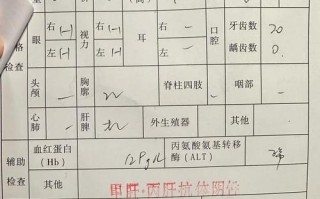 右 (-) 视 右 (-) 耳 右 口 牙齿数 20
格 眼 左 (-) 力 左 (-) 左 腔 龋齿数 0.
检查 头颅 胸廓 脊柱四肢 咽部
心肺 肝脾 外生殖器 其他
辅助 血红蛋白 129g/L 丙氨酸氨基转移
(Hb) 酶(ALT)
检查 其他 甲肝·丙肝抗体阴性